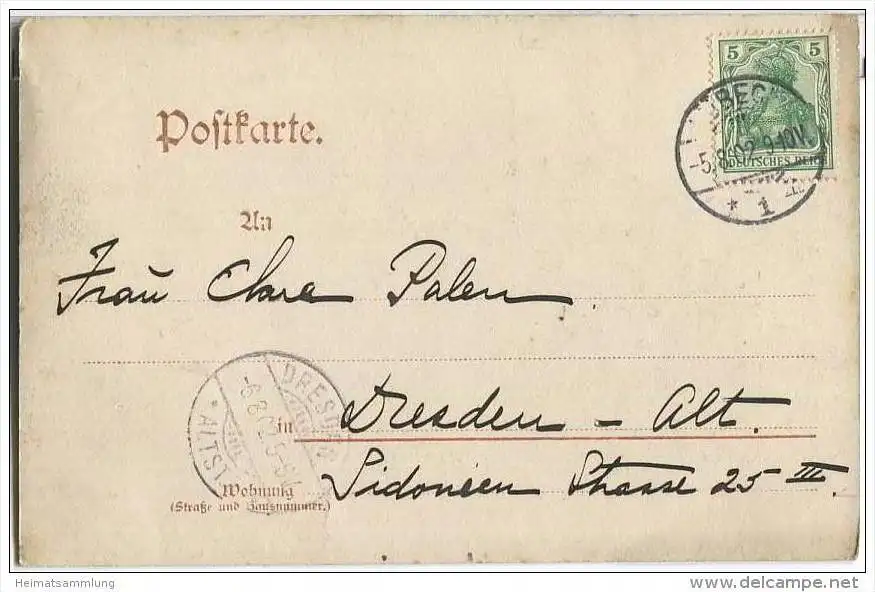 Postkarte.
5 5
DEUTSCHES REICH
-5.8.02.9-10V.
* 1
An
Frau Clara Palen
DRESDEN
-6.8.02.
* ALTST
in Dresden - Alt.
Wohnung Sidonien Strasse 25 III.
(Straße und Hausnummer.)
Heimatsammlung
www.delcampe.net